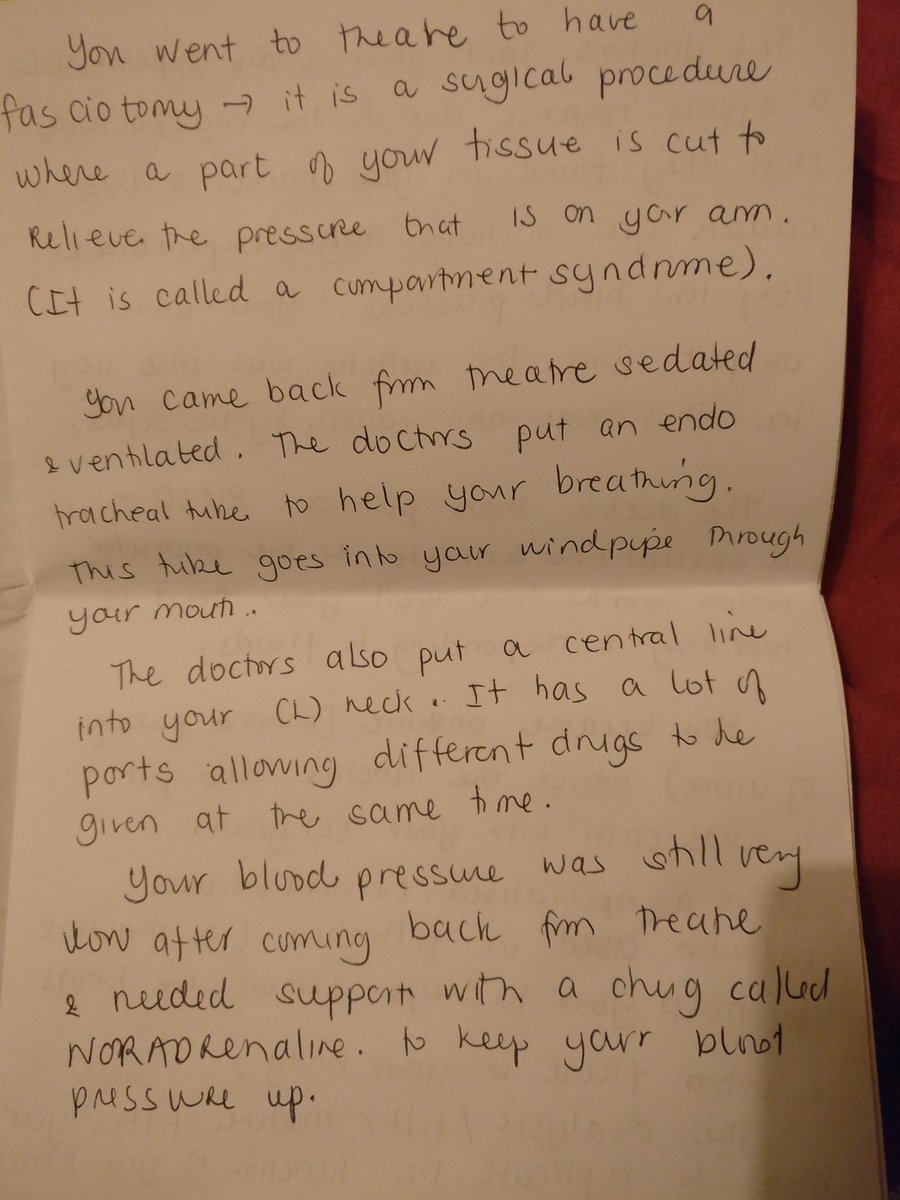 You went to theatre to have a
fasciotomy → it is a surgical procedure
where a part of your tissue is cut to
Relieve the pressure that is on your arm.
(It is called a compartment syndrome).
You came back from theatre sedated
& ventilated. The doctors put an endo
tracheal tube to help your breathing.
This tube goes into your windpipe through
your mouth..
The doctors also put a central line
into your (L) neck.. It has a lot of
ports allowing different drugs to be
given at the same time.
Your blood pressure was still very
low after coming back from theatre
& needed support with a drug called
NORADRenaline. to keep your blood
pressure up.